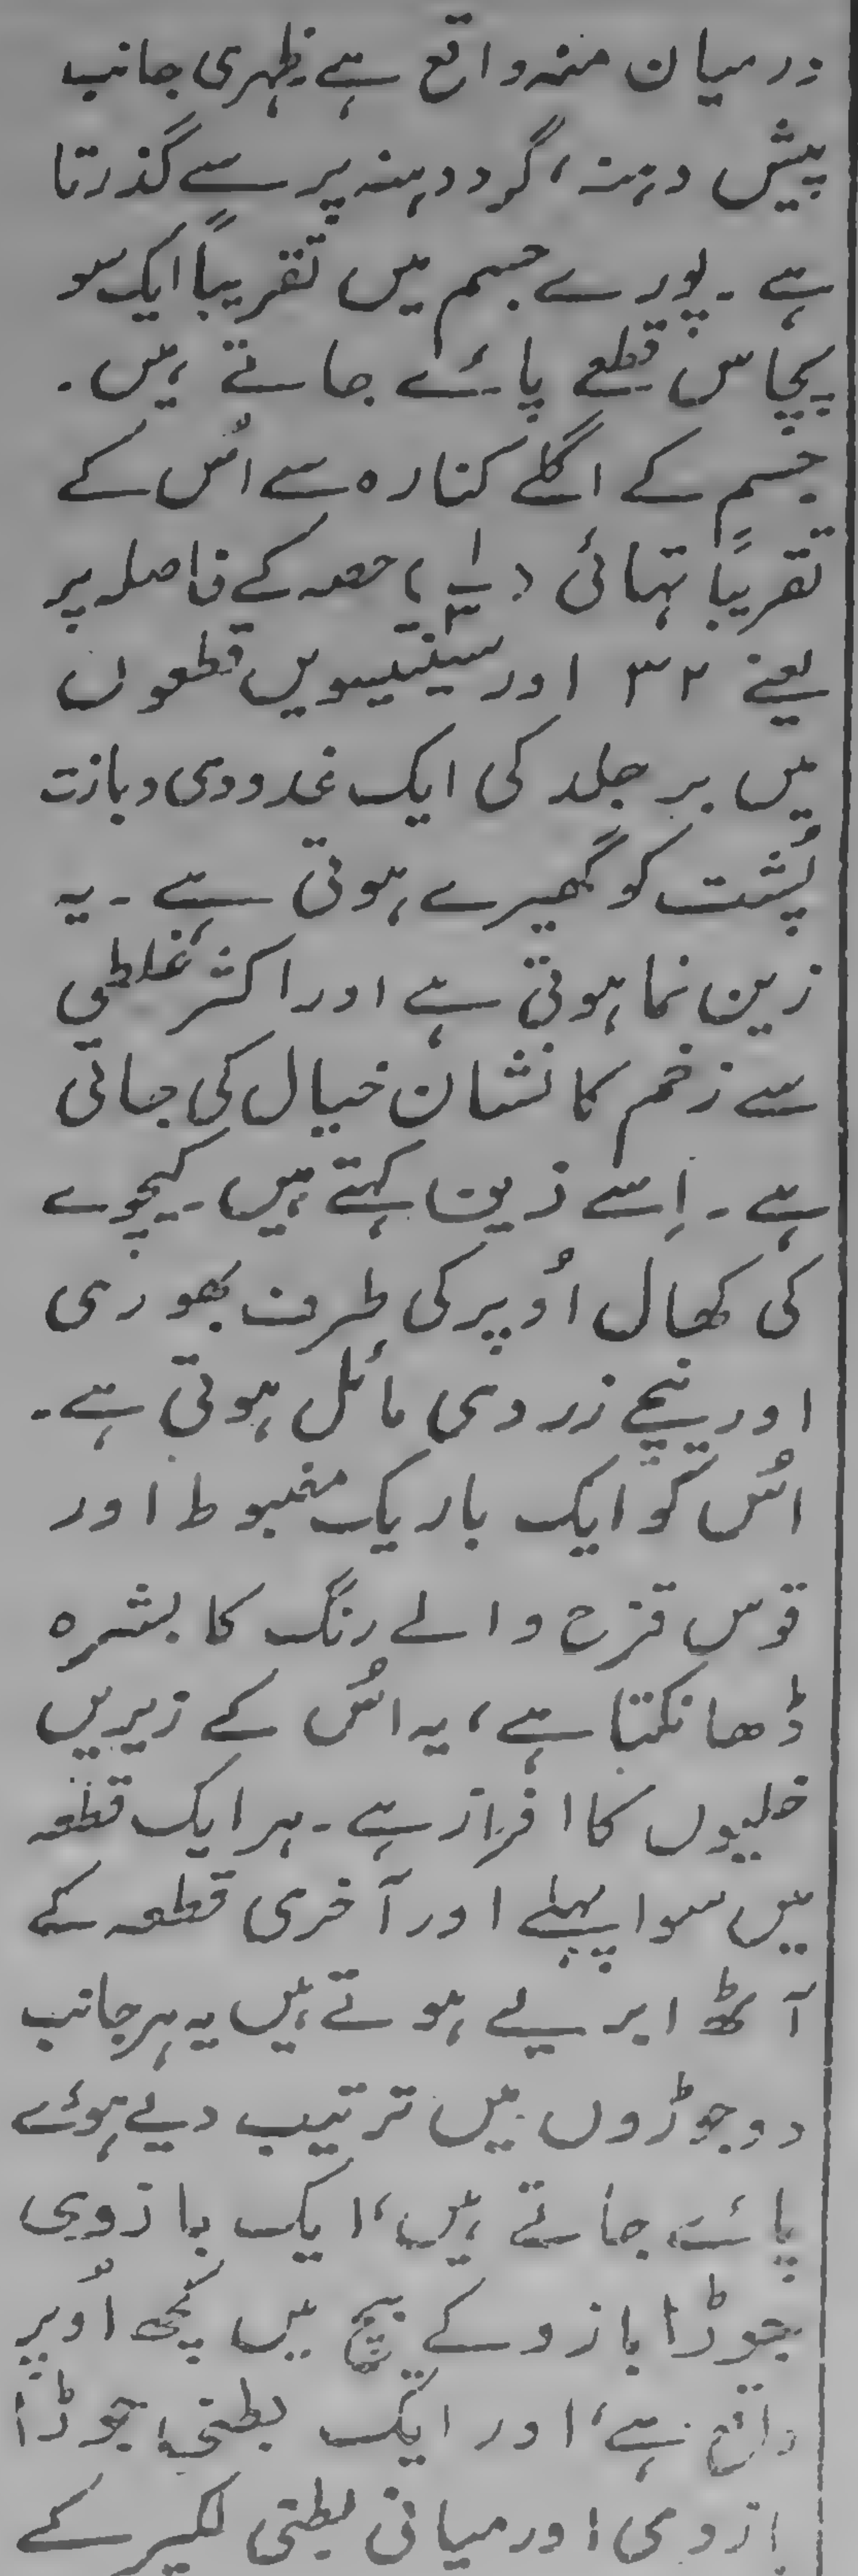 درمیان منہ واقع ہے ظہری جانب
پیش دہنہ، گرددہنہ پر سے گذرتا
ہے۔ پورے جسم میں تقریباً ایک سو
پچاس قطعے پائے جاتے ہیں۔
جسم کے اگلے کنارہ سے اُس کے
تقریباً تہائی (۱/۳) حصہ کے فاصلہ پر
یعنے ۳۲ اور سینتیسویں قطعوں
میں بر جلد کی ایک غدودی دبازت
پُشت کو گھیرے ہوتی ہے۔ یہ
زین نما ہوتی ہے اور اکثر غلطی
سے زخم کا نشان خیال کی جاتی
ہے۔ اِسے زین کہتے ہیں۔ کیچوے
کی کھال اُوپر کی طرف بھوری
اور نیچے زردی مائل ہوتی ہے۔
اُس کو ایک باریک مضبوط اور
قوس قزح والے رنگ کا بشرہ
ڈھانکتا ہے، یہ اُس کے زیریں
خلیوں کا افراز ہے۔ ہر ایک قطعہ
میں سوا پہلے اور آخری قطعہ کے
آٹھ ابریے ہوتے ہیں یہ ہر جانب
دو جوڑوں میں ترتیب دیے ہوئے
پائے جاتے ہیں، ایک بازوی
جوڑا بازو کے بیچ میں کچھ اُوپر
واقع ہے، اور ایک بطنی جوڑا
بازوی اور میانی بطنی لکیر کے